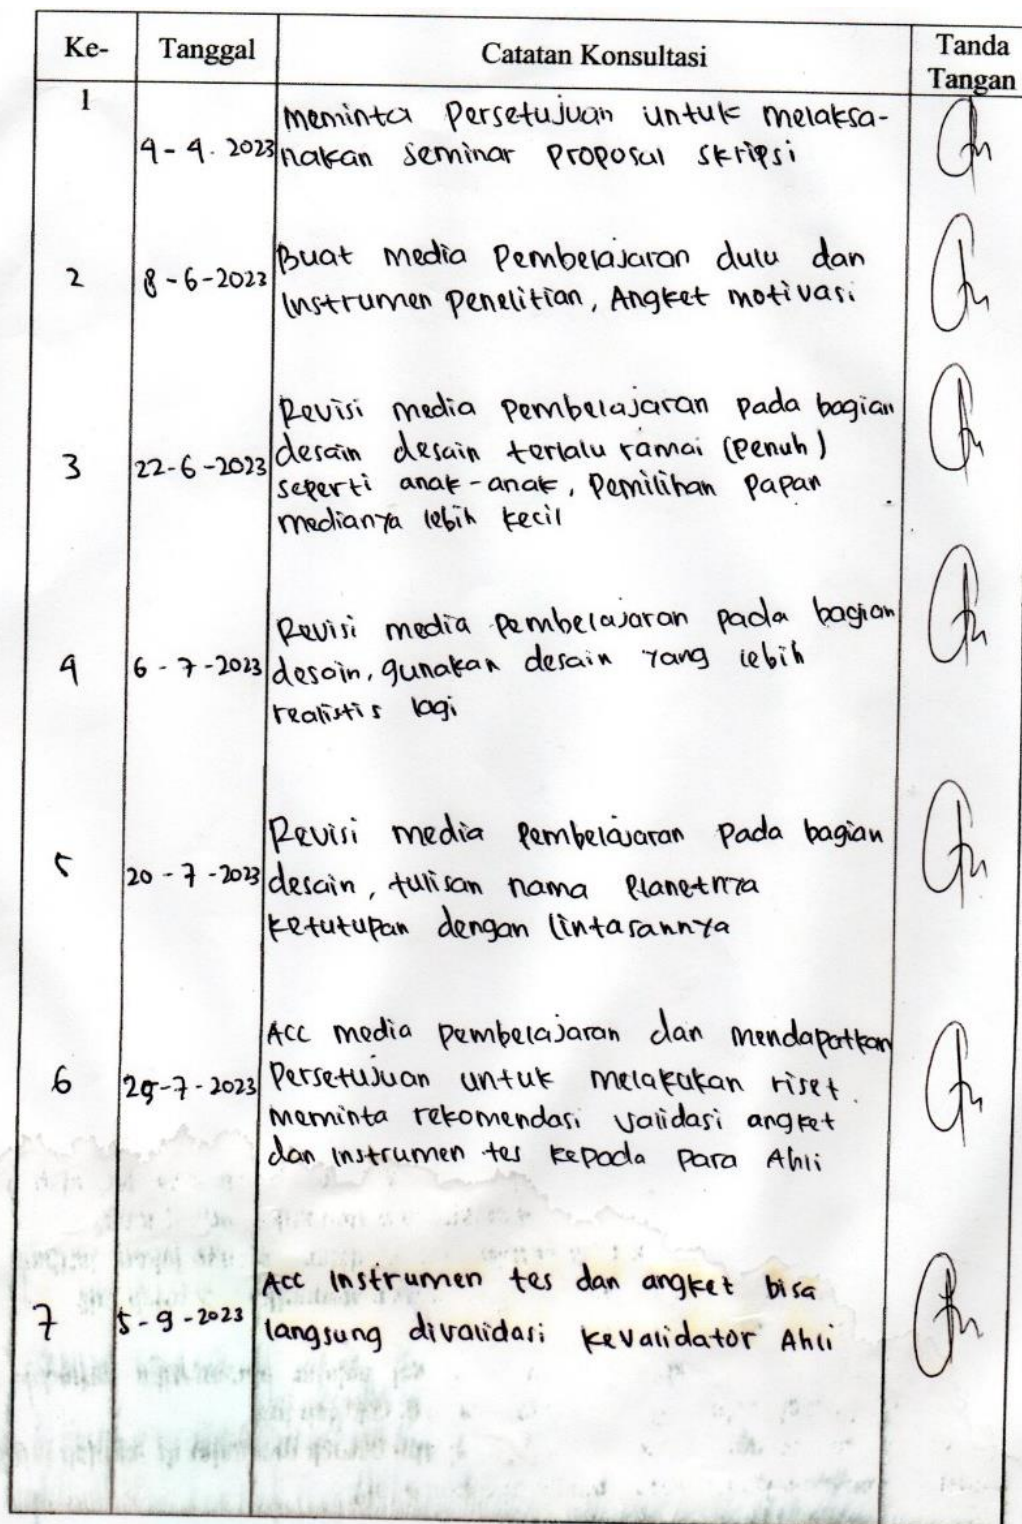 Ke- Tanggal Catatan Konsultasi Tanda Tangan
1
4-4.2023
meminta Persetujuan untuk melaksa-
nakan seminar Proposal skripsi
2
8-6-2023
Buat media Pembelajaran dulu dan
Instrumen Penelitian, Angket motivasi
3
22-6-2023
Revisi media Pembelajaran pada bagian
desain desain terlalu ramai (Penuh)
seperti anak-anak, Pemilihan Papan
medianya lebih kecil
4
6-7-2023
Revisi media Pembelajaran pada bagian
desain, gunakan desain yang lebih
realistis lagi
5
20-7-2023
Revisi media Pembelajaran Pada bagian
desain, tulisan nama Planetnya
ketutupan dengan lintasannya
6
-7-2023
Acc media pembelajaran dan mendapatkan
Persetujuan untuk melakukan riset.
meminta rekomendasi validasi angket
dan Instrumen tes kepada Para Ahli
7
5-9-2023
Acc Instrumen tes dan angket bisa
langsung divalidasi kevalidator Ahli